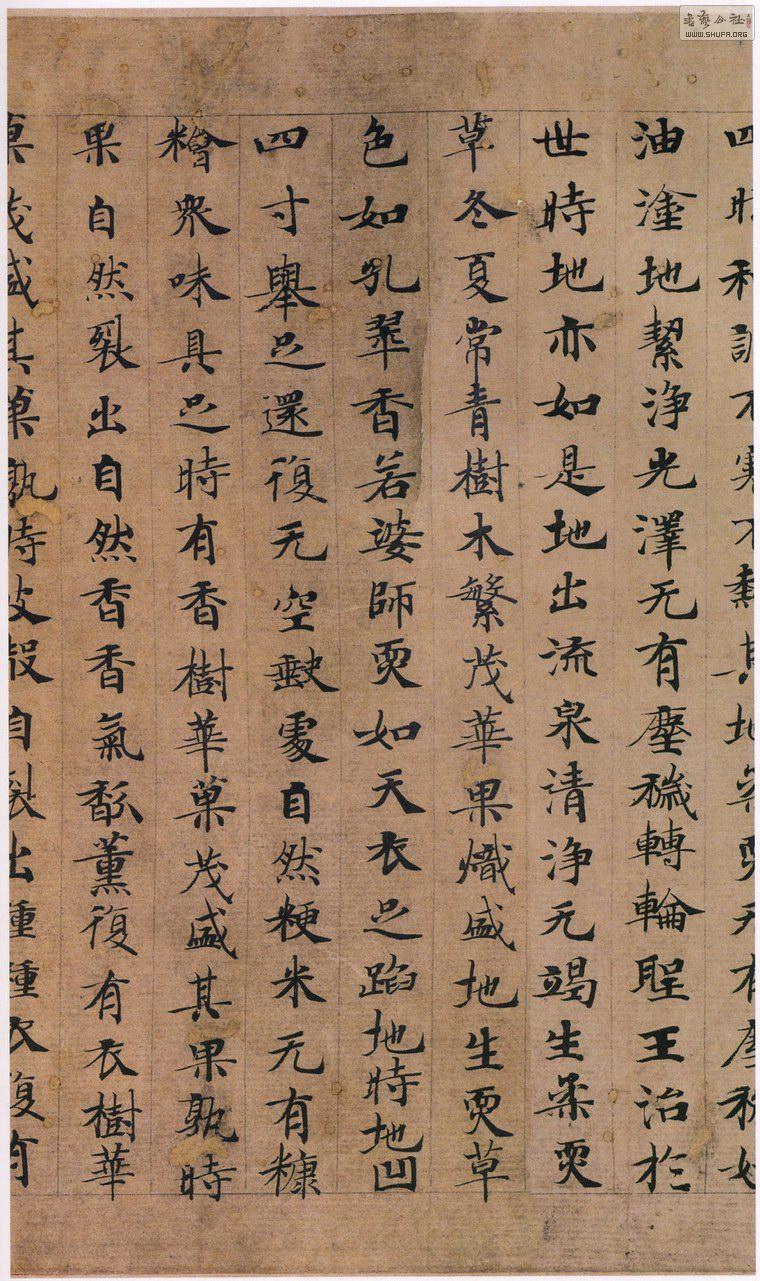 四時和調不寒不熱其地柔耎无有塵穢如
油塗地絜浄光澤无有塵穢轉輪聖王治於
世時地亦如是地出流泉清浄无竭生柔耎
草冬夏常青樹木繁茂華果熾盛地生耎草
色如孔翠香若婆師耎如天衣足蹈地時地凹
四寸舉足還復无空缺處自然粳米无有糠
糩衆味具足時有香樹華菓茂盛其果熟時
果自然裂出自然香香氣馚薰復有衣樹華
菓茂盛其菓熟時皮殼自裂出種種衣復有
WWW.SHUFA.ORG